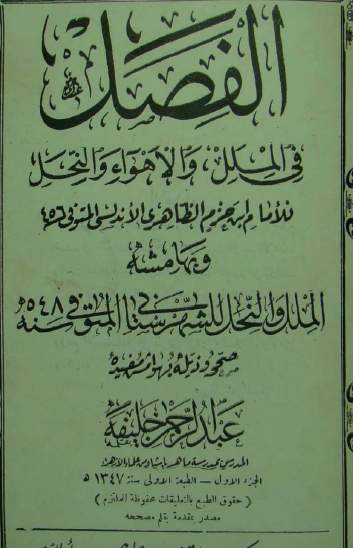 الفصل
في الملل والاهواء والنحل
للأمام ابن حزم الظاهرى الأندلسى المتوفى ٤٥٦
وبهامشه
الملل والنحل للشهرستانى المتوفى سنة ٥٤٨
صححه وذيله بهوامش مفيدة
عبد الرحمن خليفة
المدرس بمدرسة ماهر باشا ومن علماء الازهر
الجزء الاول — الطبعة الاولى سنة ١٣٤٧ ه
( حقوق الطبع بالتعليقات محفوظة للملتزم )
مصدر بمقدمة بقلم مصححه